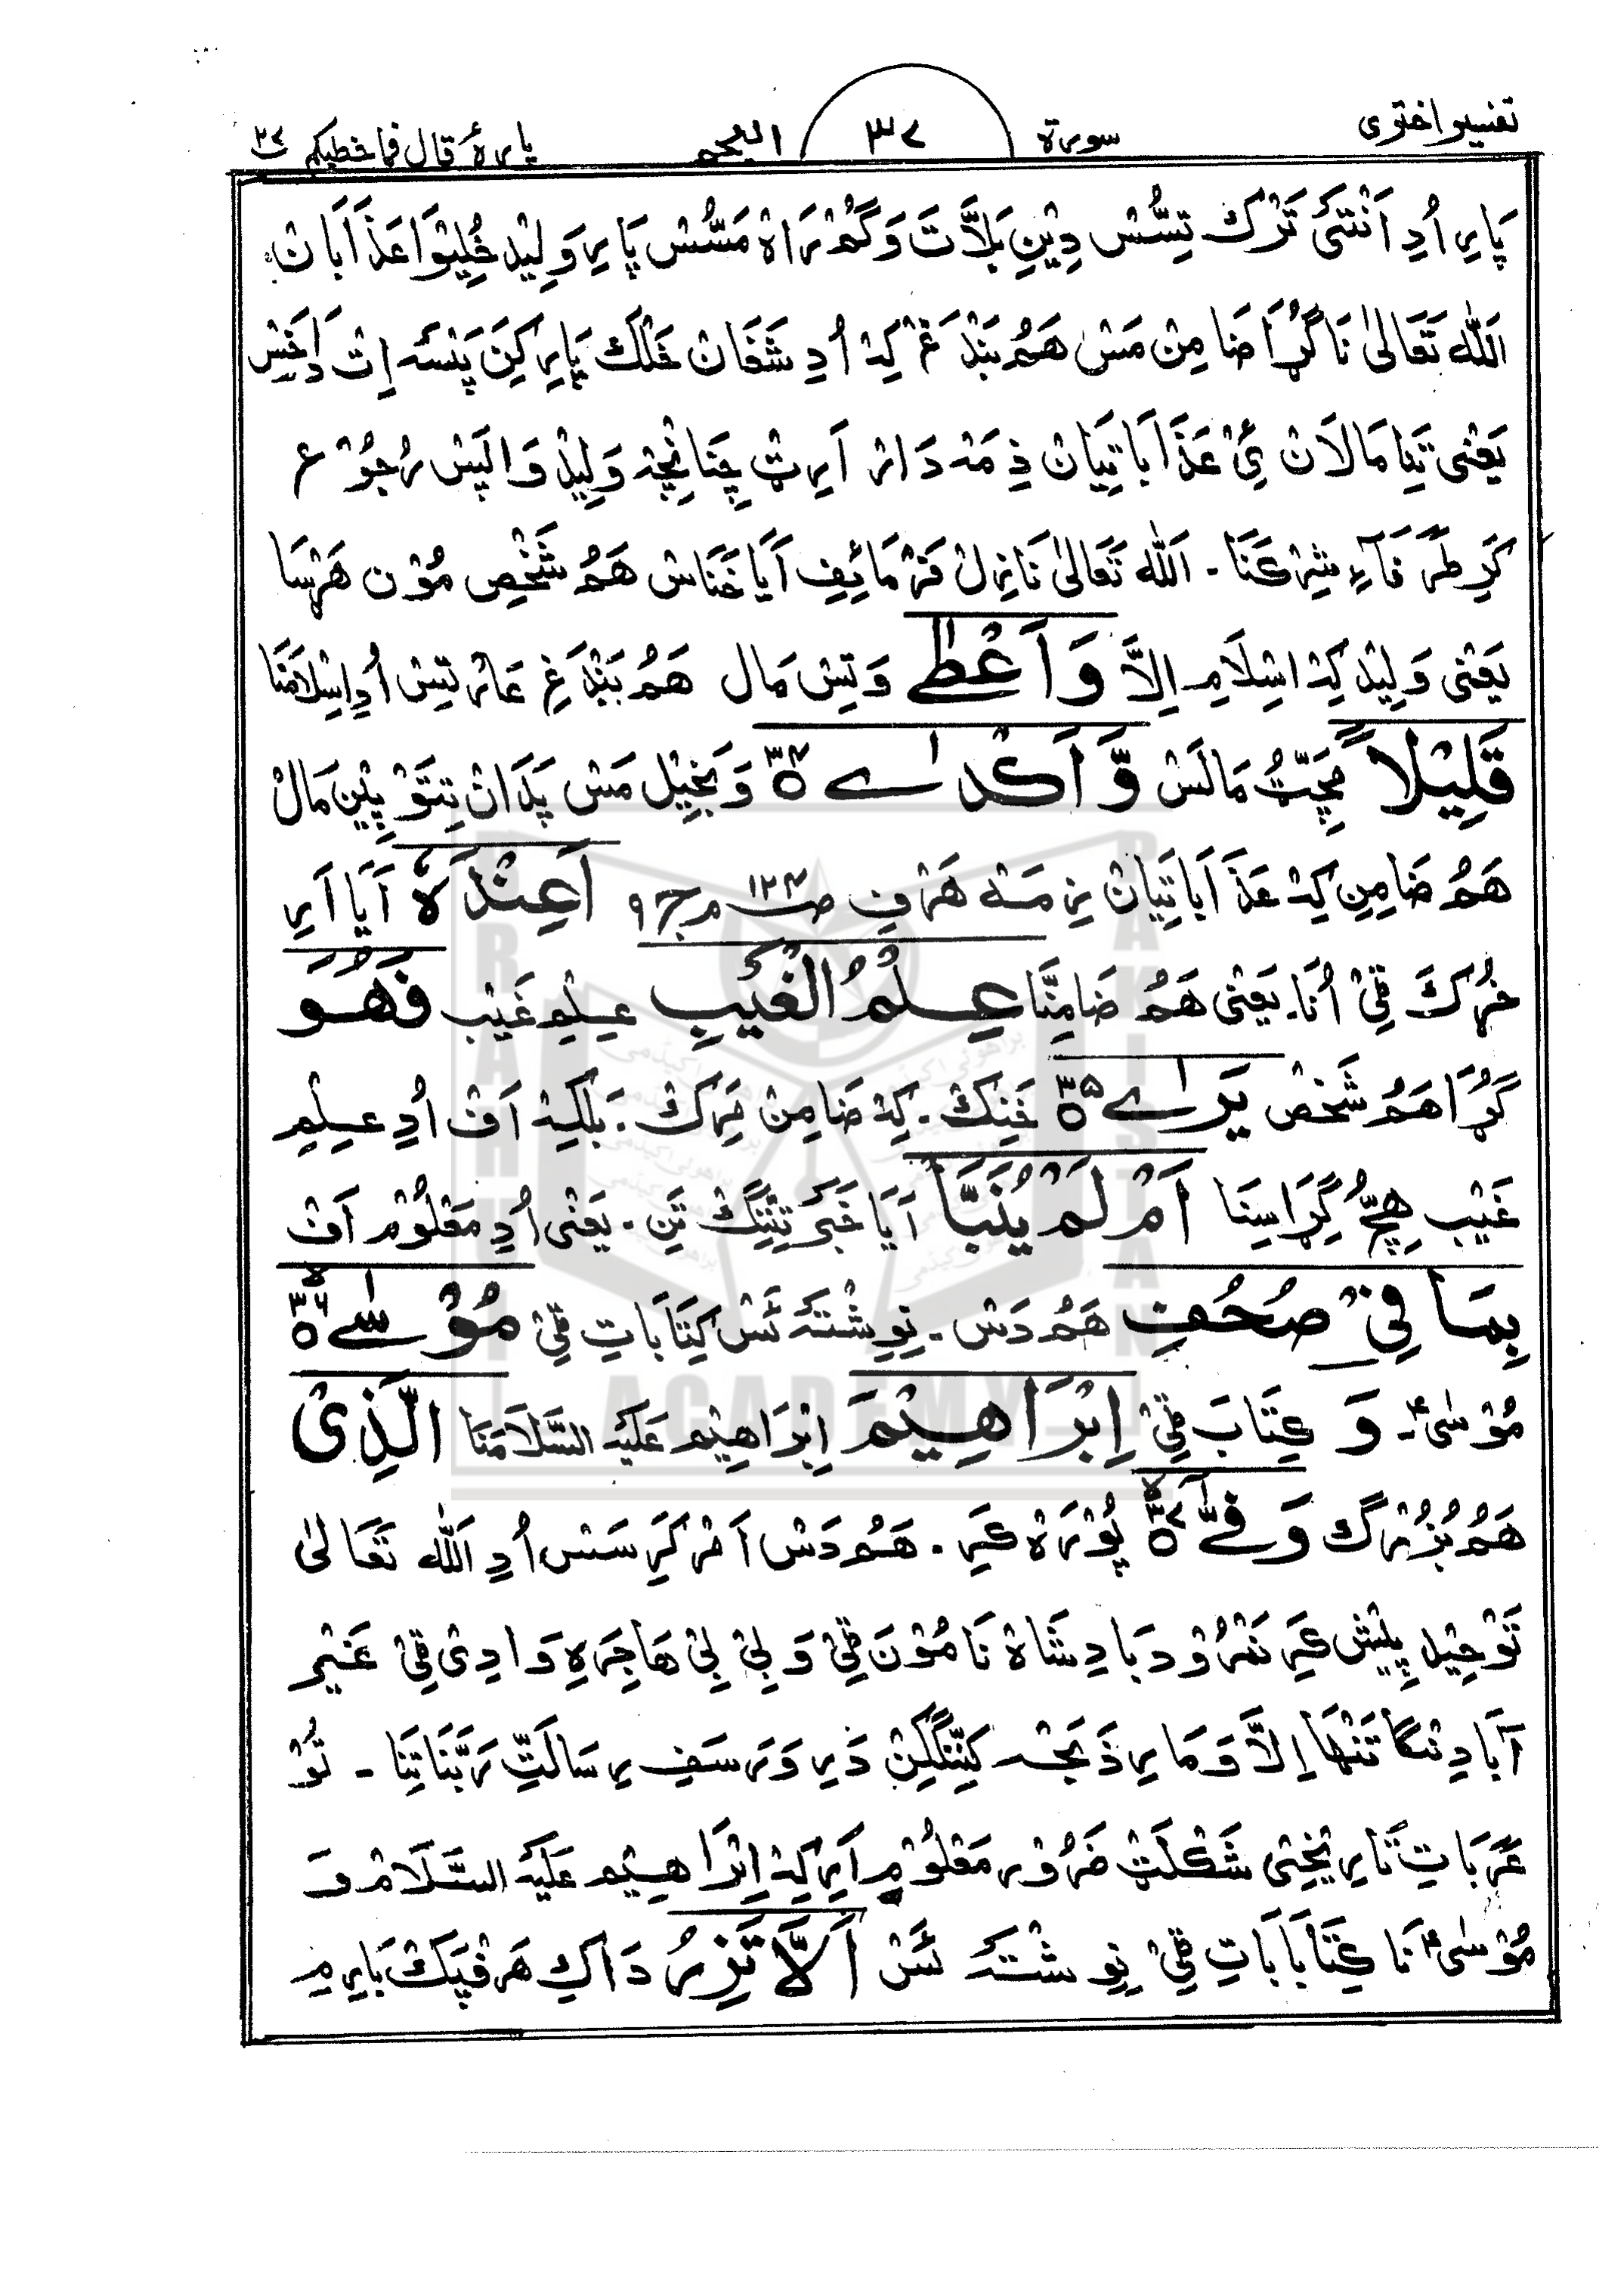 تفسیر اختری سورة ٣٧ النجم پارۂ قال فما خطبکم ٢٧
پَارِ اُدِ اَنْتَئَ تَرْک تِسُّس دِیْنِ بَلَّاتَ وَ گُمْرَاہ مَسُّس پَارِ وَلِیْد خُلِیْوَا عَذَابَانْ
اَللّٰہ تَعَالٰی نَا گُڑَا ضَامِنْ مَسْ ہَمُ بَنْدَغْ کِہْ اُدِ شَغَانْ خَلْکْ پَارِ کِنَ پَنْسَہ اِتْ دَاخَس
یَعْنٰی تَنَا مَالَانْ ئِیْ عَذَابَاتِیَانْ ذِمَّہ دَارْ اَرِٹْ چُنَانْچِہْ وَلِیْدْ وَاپَسْ رُجُوْع
کَرِ طَرَفَآءِ شِرْکَنَا ۔ اَللّٰہ تَعَالٰی نَازِلْ فَرْمَائِفِ اَیَا خَنَاسْ ہَمُ شَخْصِ مُوْن ہَرْسَا
یَعْنٰی وَلِیْد کِہْ اِسْلَامِ اِلَّا وَاَعْطٰے وَتِسْ مَال ہَمُ بَنْدَغِ عَارْ تِسْ اُدِ اِسْلَامَنَا
قَلِیْلًا مُچِٹُ مَالَسْ وَّاَکْدٰے ۝٣٤ وَ بَخِیْل مَسْ پَدَانْ تِتَوْ پِیْنِ مَالْ
ہَمُ ضَامِنِ کِہْ عَذَابَاتِیَانْ ذِمَّہ ہَرْفِ ص١٢٤ م ج٩ اَعِنْدَہٗ اَیَا اَرِ
خُڑْکَ ٹِیْ اُنَا۔ یَعْنٰی ہَمُ ضَامِنَّا عِلْمُ الْغَیْبِ عِلْمِ غَیْب فَھُوَ
گُڑَا ہَمُ شَخْصْ یَرٰے ۝٣٥ خَنِکْ ۔ کِہْ ضَامِنْ مَرِکْ ۔ بَلْکِہْ اَفْ اُدِ عِلْمِ
غَیْب ہِچُّ گِڑَاسِنَا اَمْ لَمْ یُنَبَّأْ اَیَا خَبَرْ تِتِنَّکْ تَنِ ۔ یَعْنٰی اُدِ مَعْلُوْم اَفْ
بِمَا فِیْ صُحُفِ ہَمُ دَسْ ۔ نِوِشْتَہ ئَسْ کِتَابَاتِ ٹِیْ مُوْسٰے ۝٣٦
مُوْسٰیؑ ۔ وَ کِتَابَ ٹِیْ اِبْرَاھِیْمَ اِبْرَاہِیْم عَلَیْہِ السَّلَامَنَا الَّذِیْ
ہَمُ بُزُرْگ وَفّٰے ۝٣٧ پُوْرَہْ کَرِ ۔ ہَمُ دَسْ اَمْر کَرِسَسْ اُدِ اَللّٰہ تَعَالٰی
تَوْحِیْد پِیْش کَرِ نَمْرُوْد بَادِشَاہ نَا مُوْن ٹِیْ وَ بِیْ بِیْ ہَاجَرَہِ وَادِیْ ٹِیْ غَیْر
آبَادِنْگَا تَنْہَا اِلَّا وَ مَارِ ذَبْح کِنِّنْگِکِنْ دَرِ وَ رَسَفِ رِسَالَتِ رَبَّنَا تِنَا ۔ تَوْ
عَرَبَاتِ تَارِیْخِیْ شَکْلَٹْ ضَرُوْر مَعْلُوْمِ اَرِ کِہْ اِبْرَاہِیْم عَلَیْہِ السَّلَامْ وَ
مُوْسٰیؑ نَا کِتَابَاتِ ٹِیْ نِوِشْتَہ ئَسْ اَلَّا تَزِرُ دَاکِ ہَرْفَپَکْ بَارِمِ
BRAHUI ACADEMY PAKISTAN
براہوئی اکیڈمی